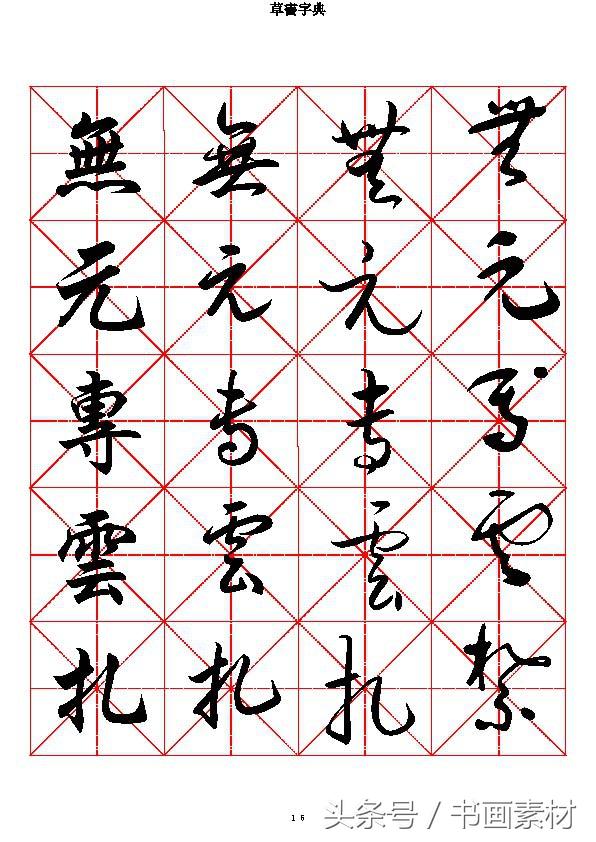 草書字典
無 無 無 無
元 元 元 元
專 專 專 專
雲 雲 雲 雲
扎 扎 扎 紮
16
头条号 / 书画素材